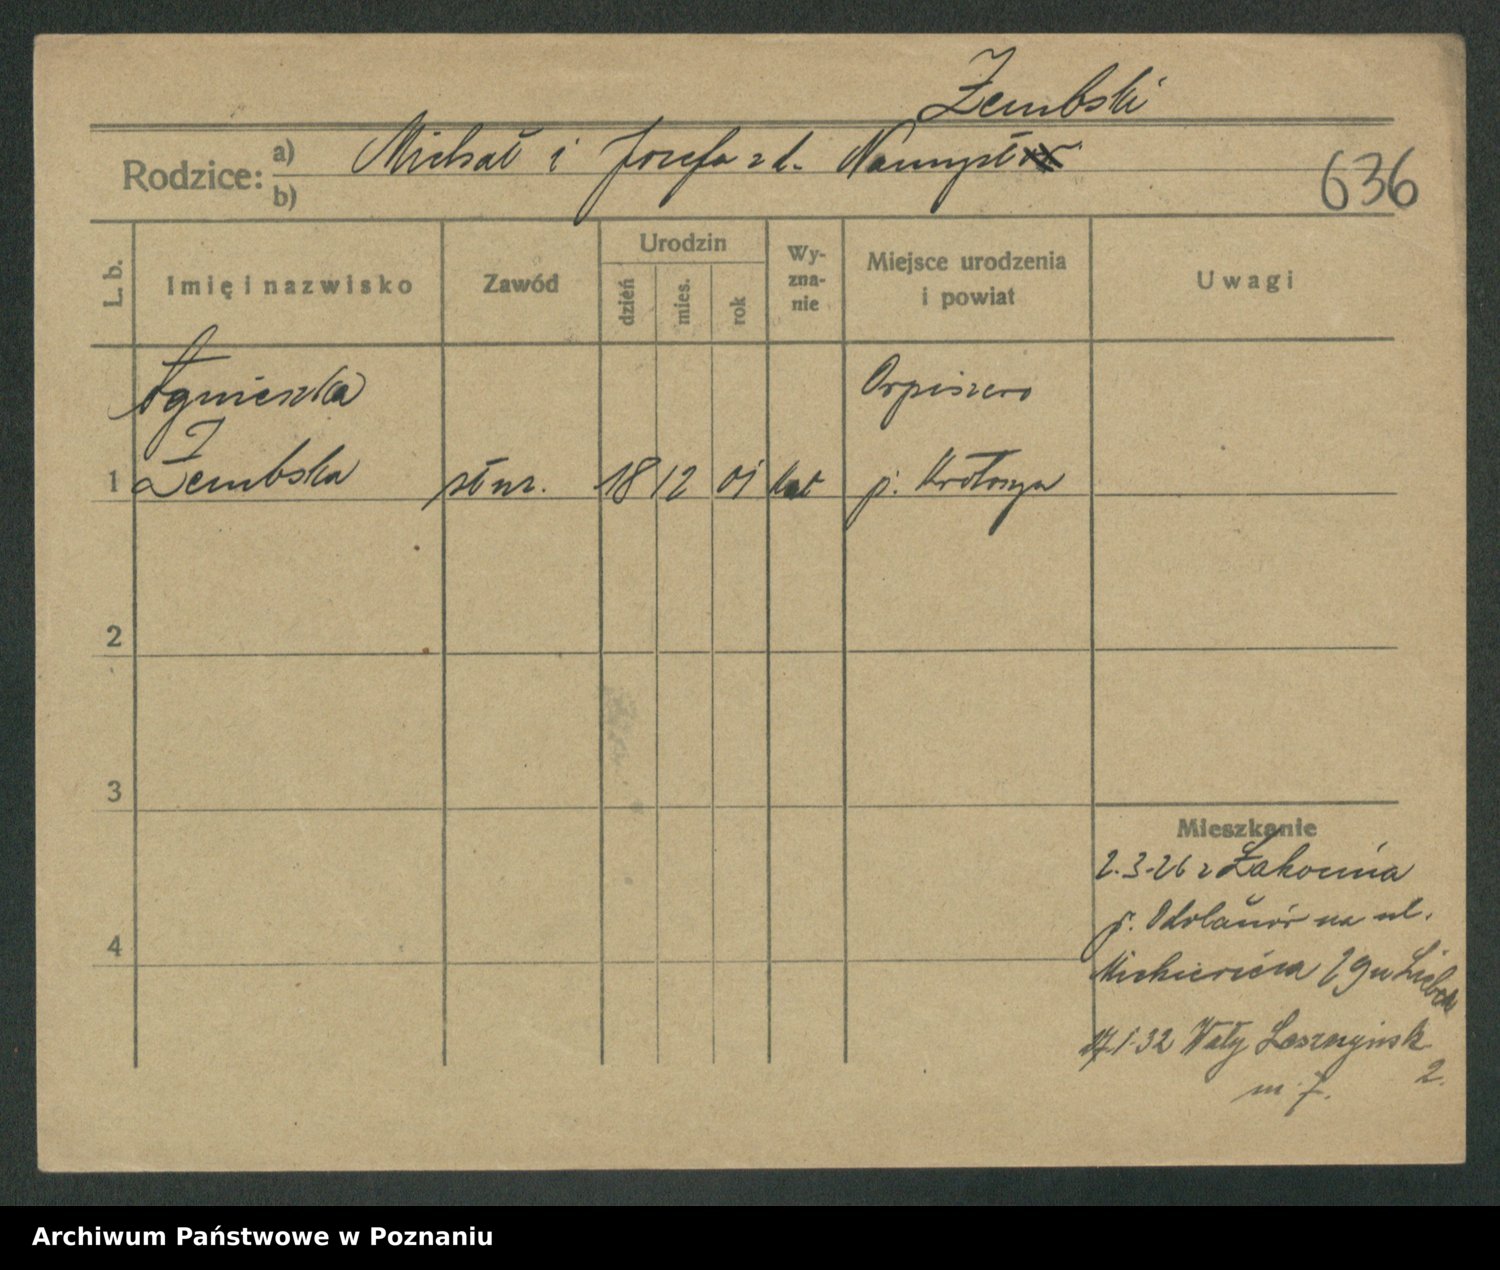 Zembski
Rodzice: a) Michał i Józefa z d. Namysł
b)
636
L. b.
Imię i nazwisko
Zawód
Urodzin
dzień
mies.
rok
Wy-
zna-
nie
Miejsce urodzenia
i powiat
Uwagi
Agnieszka
Orpiszew
1 Zembska służ. 18 12 01 kat p. Krotoszyn
2
3
4
Mieszkanie
2.3.26 z
p. Odolanów na ul.
Mickiewicza 29 u
17.1.32 Wały Leszczyńsk
2.
m 7.
Archiwum Państwowe w Poznaniu